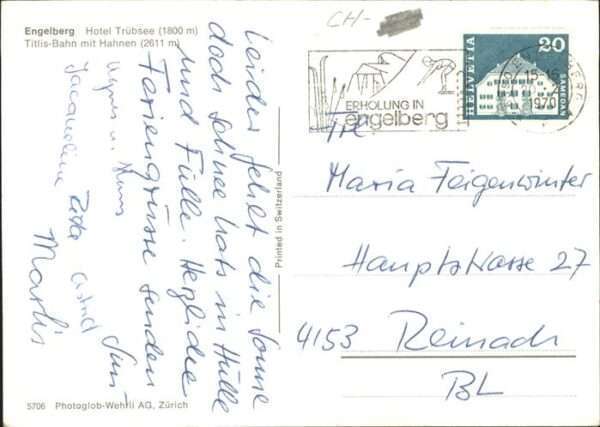 Engelberg Hotel Trübsee (1800 m)
Titlis-Bahn mit Hahnen (2611 m)
Leider fehlt die Sonne
doch Schnee hats in Hülle
und Fülle. Herzliche
Feriengrüsse senden
Agnes u.
Jacqueline Rita Astrid
Printed in Switzerland
5706 Photoglob-Wehrli AG, Zürich
CH-
ERHOLUNG IN
engelberg
HELVETIA
20
SAMEDAN
15-16
1970
Frl.
Maria Feigenwinter
Hauptstrasse 27
4153 Reinach
BL